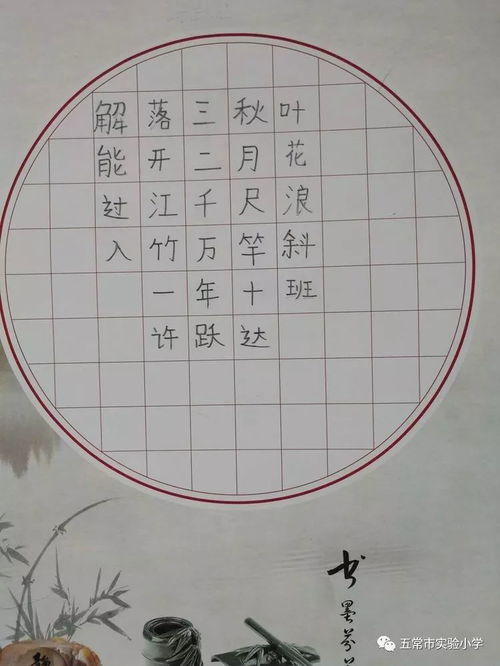 解落三秋叶
能开二月花
过江千尺浪
入竹万竿斜
一年十班
许跃达
书
墨芬
五常市实验小学